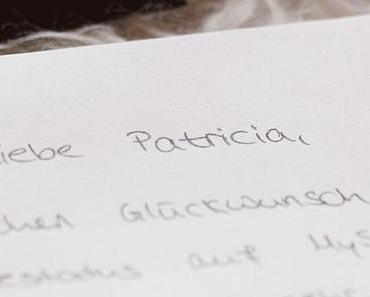 iebe Patricia,
chen Glückwunsch
estatus auf MyS